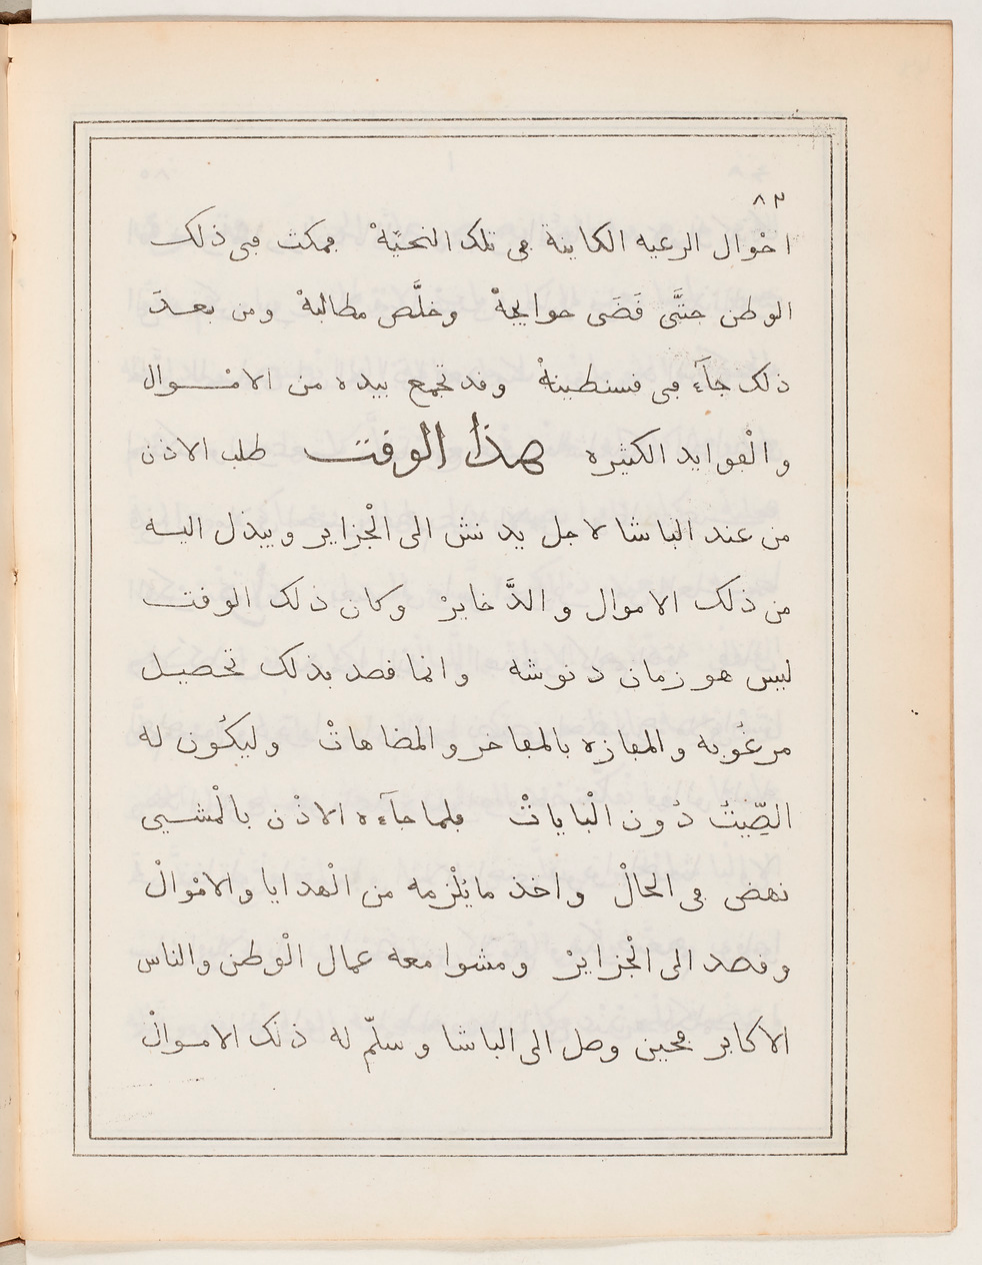 ٨٣
احْوال الرعيه الكاينة في تلك النحيّهْ فمكث في ذلك
الوطن حتَّى قَضَى حوايجهْ وخلَّص مطالبهْ ومن بعدَ
ذلك جآء في قسنطينهْ وقد تجمع بيده من الامْوال
والْفوايد الكثيره هذا الوقت طلب الاذن
من عند الباشا لاجل يدنش الى الْجزاير ويبذل اليه
من ذلك الاموال والذَّخايرْ وكان ذلك الوقت
ليس هو زمان دنوشه وانما قصد بذلك تحصيل
مرغُوبه والمفازه بالمفاخر والمضاهاتْ وليكُون له
الصّيتُ دُون الْباياتْ فلما جآءه الاذْن بالْمشيي
نهض في الحالْ واخذ مايَلْزمه من الْهدايا والامْوالْ
وقصد الى الْجزايرْ ومشوا معه عمال الْوطن والناس
الاكابر فحين وصل الى الباشا وسلّم له ذلك الاموالْ